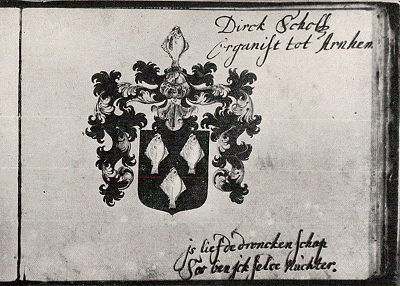 Dirck Scholl
organist tot Arnhem
js liefde droncken schap
Soo ben ick selde Nuchter.